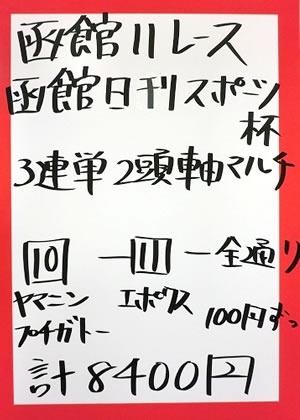 函館11レース
函館日刊スポーツ
杯
3連単2頭軸マルチ
10 - 11 - 全通り
ヤマニン
プチガトー
エポクス
100円ずつ
計8400円